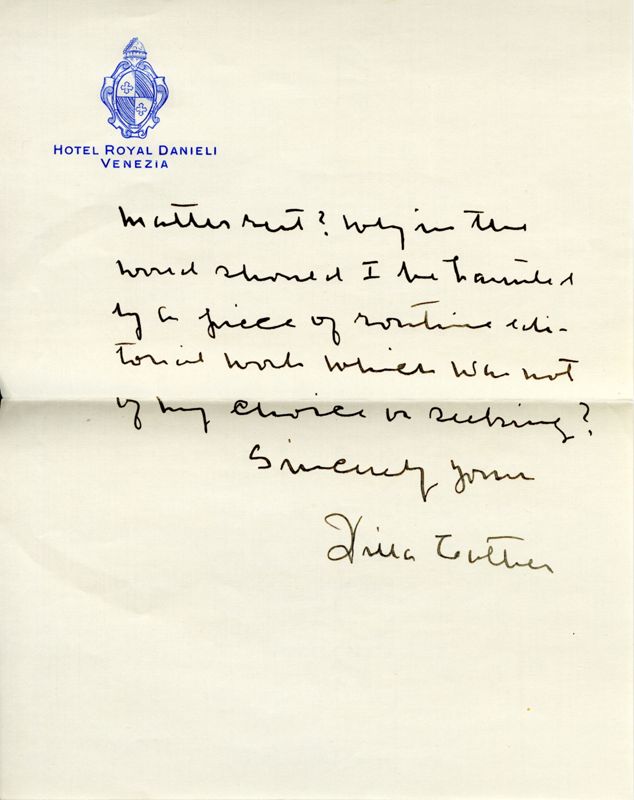 HOTEL ROYAL DANIELI
VENEZIA
matter rest? Why in the
world should I be haunted
by a piece of routine edi-
torial work which was not
of my choice or seeking?
Sincerely yours
Willa Cather